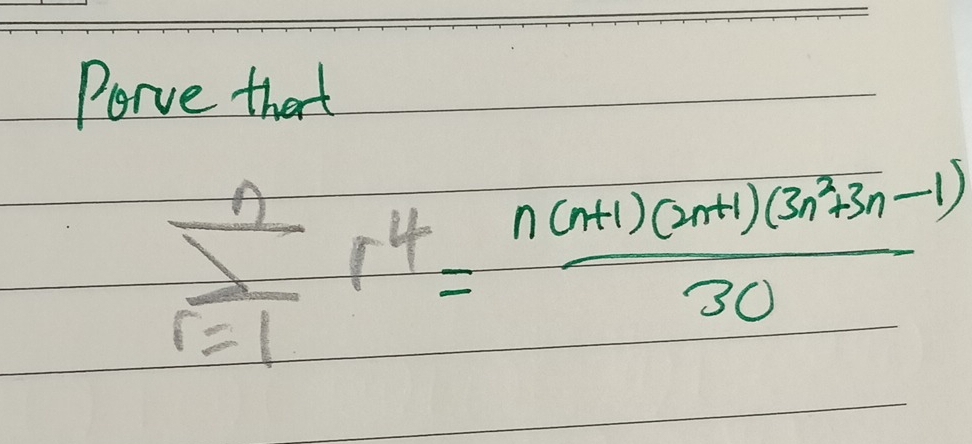 Porve that
n
∑ r⁴ = n(n+1)(2n+1)(3n²+3n-1)
30
r=1